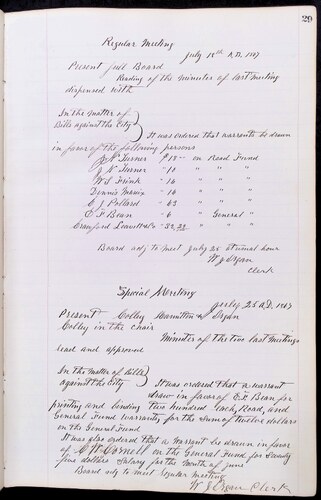 29
Regular Meeting
July 18th A.D. 1867
Present full Board
Reading of the minutes of last meeting
dispensed with
In the matter of
Bills against the City
It was ordered that warrants be drawn
in favor of the following persons
Turner $18 on Road Fund
J. N. Turner " 10 " " "
W. S. Frink " 14 " " "
Dennis " 14 " " "
C. J. Pollard " 63 " " "
E. F. Bean " 6 " General "
Crawford
Board adj to meet July 25 at usual hour
W. J. Organ
Clerk
Special Meeting
July 25 A.D. 1867
Present Colby Hamilton & Organ
Colby in the chair
Minutes of the two last meetings
read and approved
In the matter of bills
against the City
It was ordered that a warrant
drawn in favor of E. F. Bean for
printing and binding two hundred each, Road, and
General Fund warrants for the sum of twelve dollars
on the General Fund
It was also ordered that a warrant be drawn in favor
of Cornell on the General Fund for Twenty
five dollars salary for the month of June
Board adj to meet regular meeting
W. J. Organ Clerk